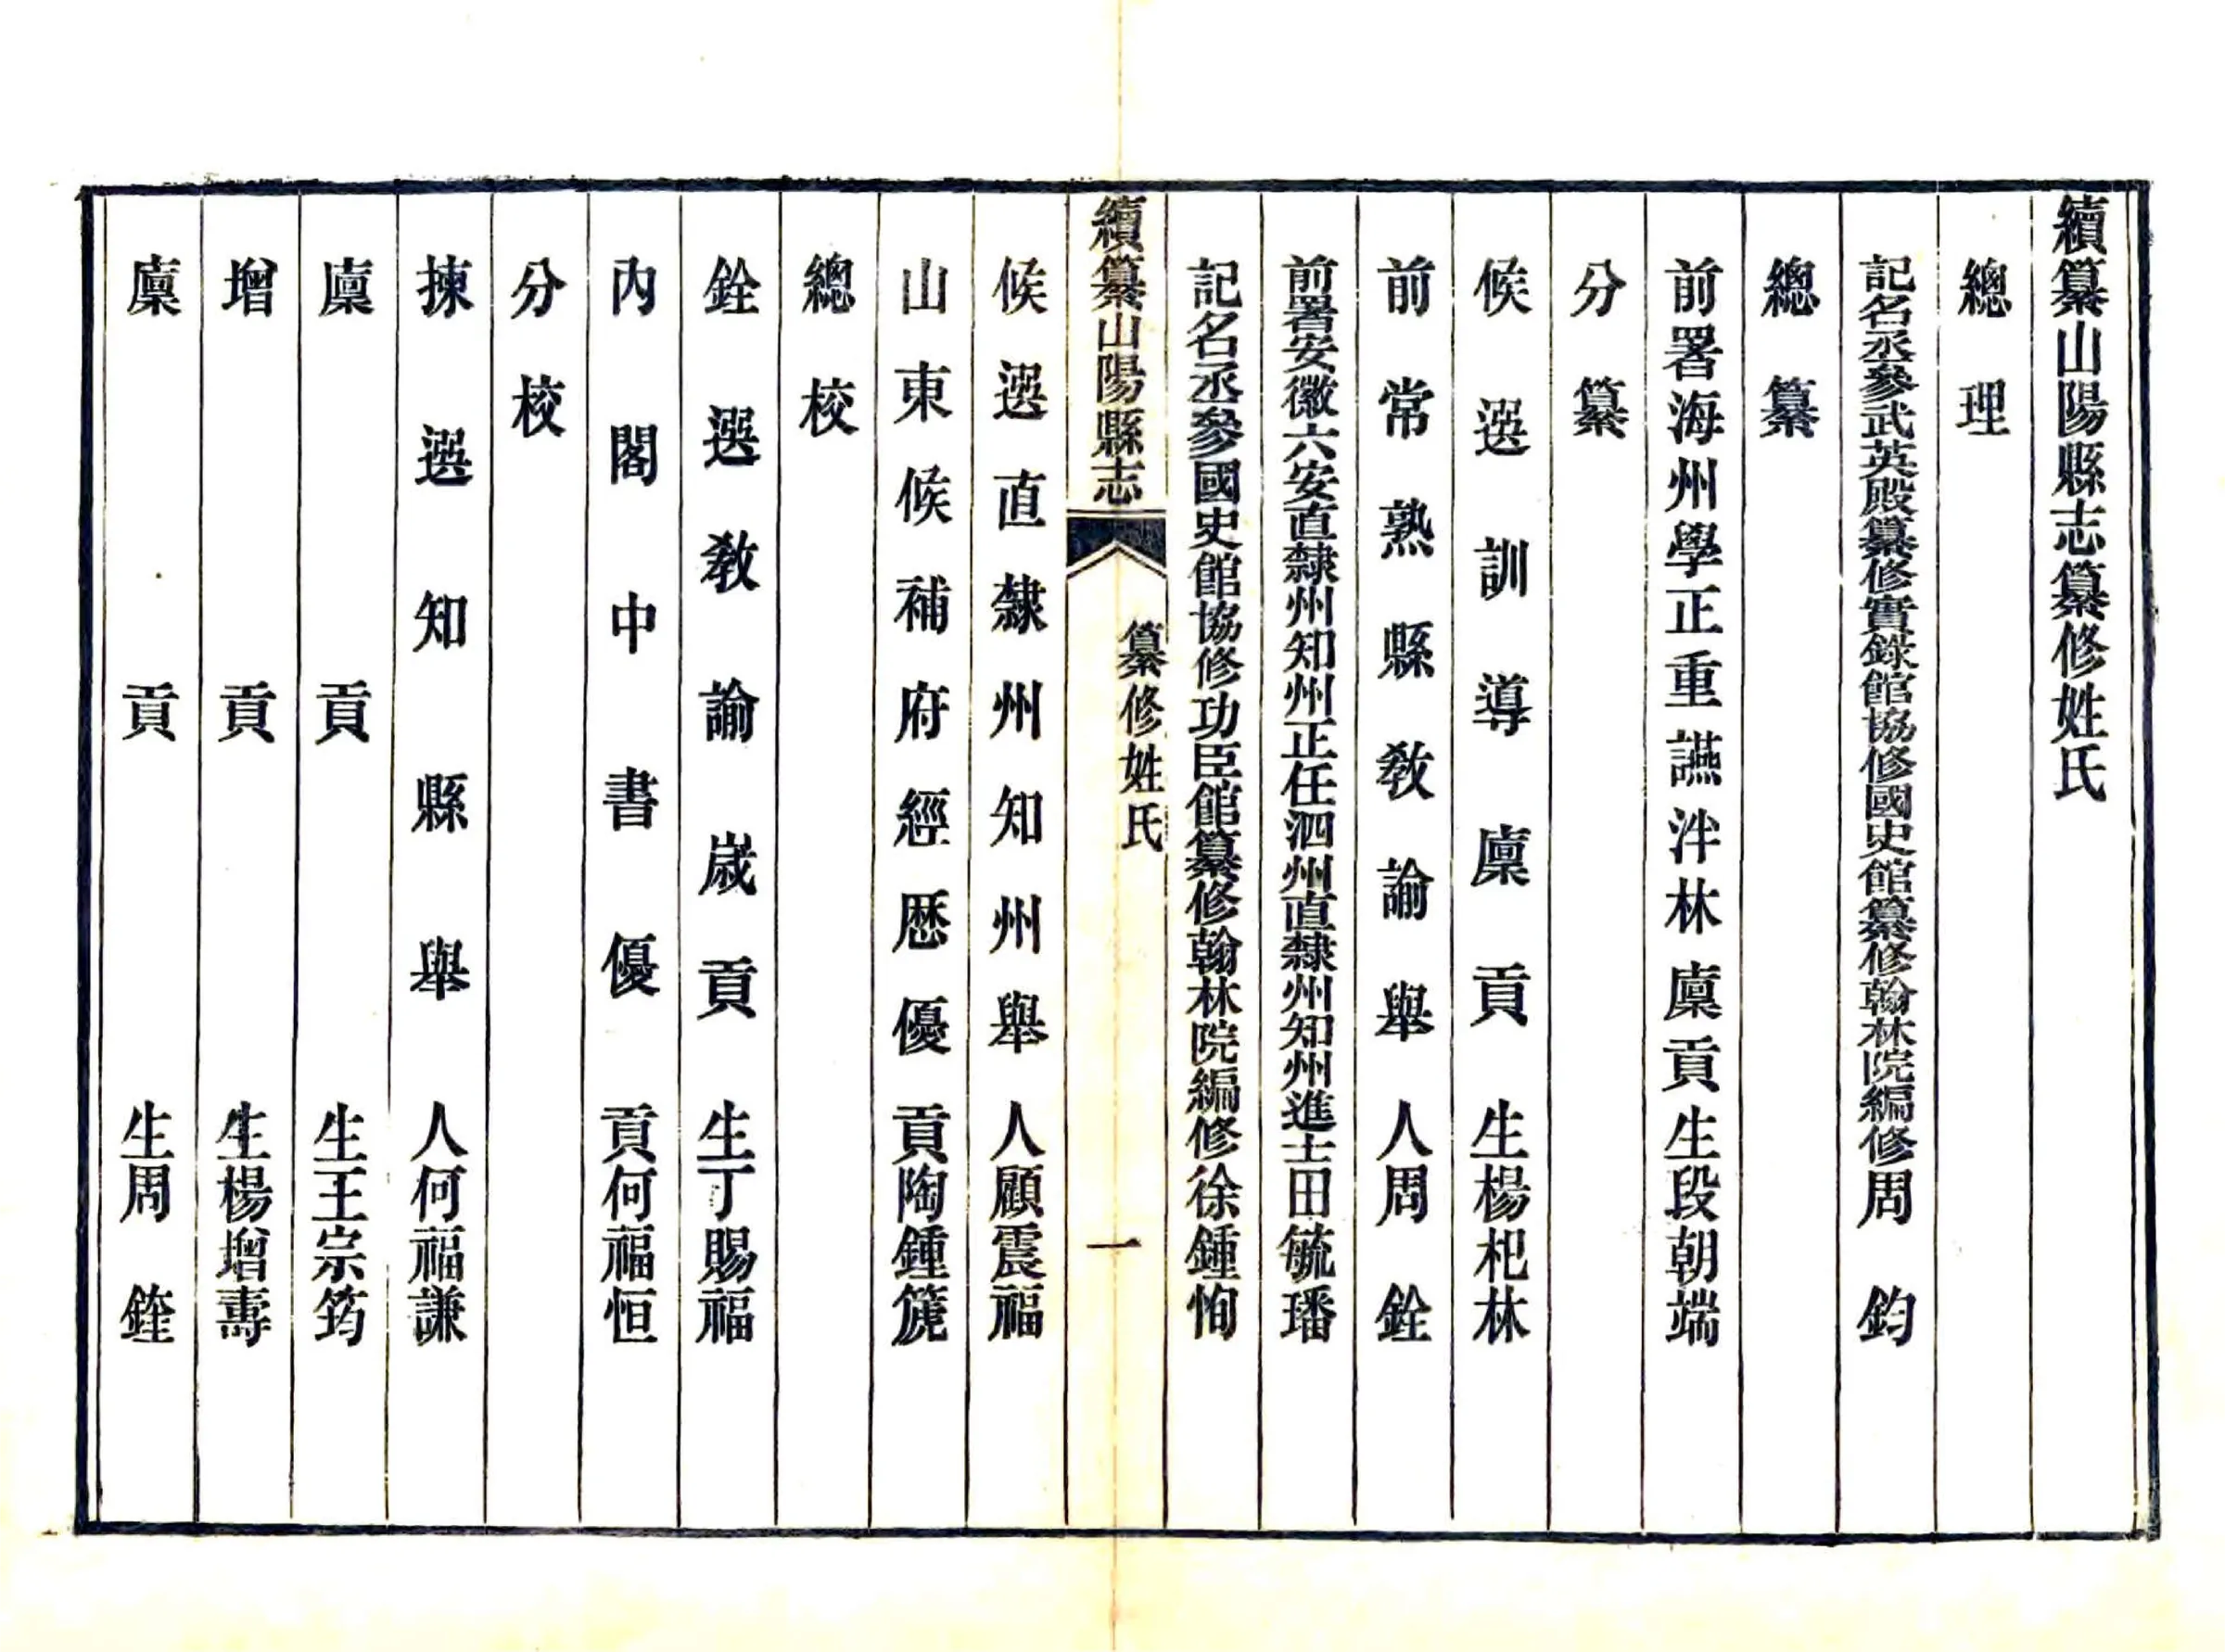 續纂山陽縣志纂修姓氏
總理
記名丞參武英殿纂修實錄館協修國史館纂修翰林院編修周鈞
總纂
前署海州學正重讌泮林廩貢生段朝端
分纂
候選訓導廩貢生楊杞林
前常熟縣敎諭舉人周銓
前署安徽六安直隸州知州正任泗州直隸州知州進士田毓璠
記名丞參國史館協修功臣館纂修翰林院編修徐鍾恂
續纂山陽縣志
纂修姓氏
一
候選直隸州知州舉人顧震福
山東候補府經歷優貢陶鍾箎
總校
銓選敎諭歲貢生丁賜福
內閣中書優貢何福恒
分校
揀選知縣舉人何福謙
廩貢生王宗筠
增貢生楊增壽
廩貢生周鍷